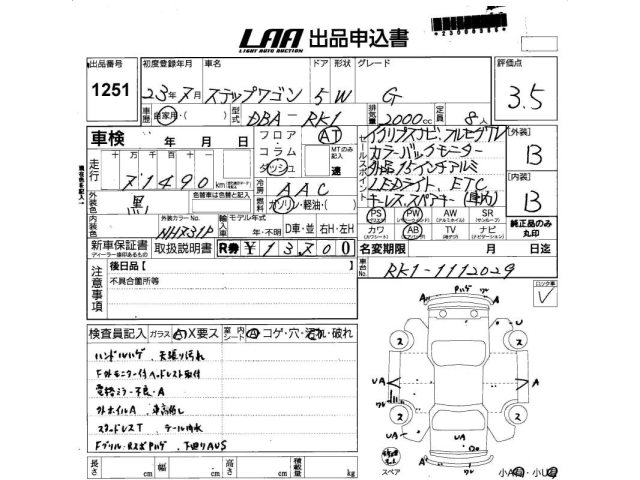 LAA 出品申込書
LIGHT AUTO AUCTION
出品番号 初度登録年月 車名 ドア 形状 グレード 評価点
1251 23年7月 ステップワゴン 5 W G 3.5
車歴 自家用・( ) 型式 DBA-RK1 排気量 2000cc 定員 8人
車検 年 月 日
フロア・コラム ダッシュ AT
MTのみ記入 速
セールスポイント
イクリプスナビ、フルセグTV
カラーバックモニター
外品15インチアルミ
LEDライト、ETC
キーレス、スペアキー(車内)
[外装] B
[内装] B
純正品のみ丸印
走行 十万 万 千 百 十 71490 km
冷房 AAC
外装色 黒 色替車は色替と記入
燃料 ガソリン・軽油・( )
内装色 外装カラーNo. NH731P
輸入車 モデル年式 年・不明 D車・並 右H・左H
PS PW AW SR
カワ AB TV ナビ
新車保証書 取扱説明書 R券 ¥13700
ディーラー捺印あるもの
名変期限 月 日迄
車台No. RK1-1112029
注意事項 後日品[ ]
不具合箇所等
検査員記入 ガラス A X要ス 室内シート A コゲ・穴・汚れ・破れ
ハンドルハゲ、天張り汚れ
Fホイルモニター付ヘッドレスト取付
電格ミラー不良・A
外ホイルA 車高落し
スタッドレスT
下回りAUS
長さ cm 幅 cm 高さ cm 積載量 kg
スペア
小A 小U